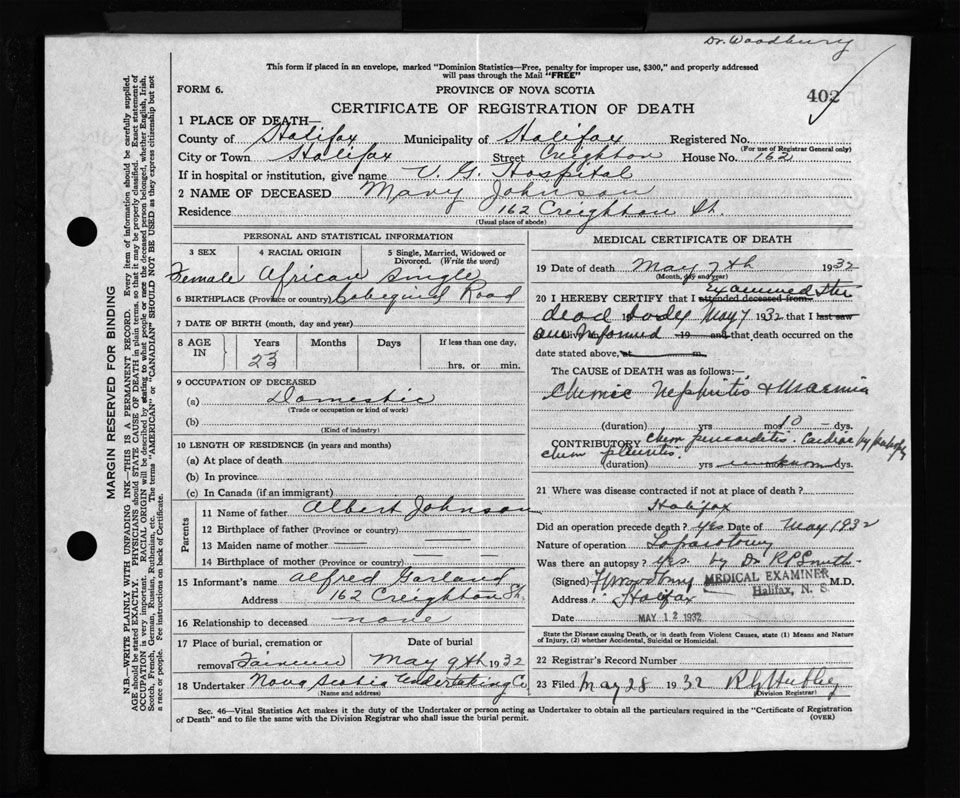 Dr. Woodbury
This form if placed in an envelope, marked "Dominion Statistics—Free, penalty for improper use, $300," and properly addressed
will pass through the Mail "FREE"
FORM 6.
PROVINCE OF NOVA SCOTIA
402
CERTIFICATE OF REGISTRATION OF DEATH
1 PLACE OF DEATH—
County of Halifax Municipality of Halifax Registered No.
(For use of Registrar General only)
City or Town Halifax Street Creighton House No. 162
If in hospital or institution, give name V. G. Hospital
2 NAME OF DECEASED Mary Johnson
Residence 162 Creighton St.
(Usual place of abode)
PERSONAL AND STATISTICAL INFORMATION
3 SEX 4 RACIAL ORIGIN 5 Single, Married, Widowed or Divorced. (Write the word)
Female African Single
6 BIRTHPLACE (Province or country) Cobequid Road
7 DATE OF BIRTH (month, day and year)
8 AGE IN Years Months Days If less than one day,
23 hrs. or min.
9 OCCUPATION OF DECEASED
(a) Domestic
(Trade or occupation or kind of work)
(b)
(Kind of industry)
10 LENGTH OF RESIDENCE (in years and months)
(a) At place of death
(b) In province
(c) In Canada (if an immigrant)
Parents
11 Name of father Albert Johnson
12 Birthplace of father (Province or country)
13 Maiden name of mother
14 Birthplace of mother (Province or country)
15 Informant's name Alfred Garland
Address 162 Creighton St.
16 Relationship to deceased none
17 Place of burial, cremation or Date of burial
removal May 9th 1932
18 Undertaker Nova Scotia Undertaking Co
(Name and address)
MEDICAL CERTIFICATE OF DEATH
19 Date of death May 7th 1932
(Month, day and year)
Examined the
20 I HEREBY CERTIFY that I attended deceased from
dead body May 7 1932 that I last saw
am informed 19 and that death occurred on the
date stated above, at m.
The CAUSE of DEATH was as follows:—
Chronic Nephritis & Uraemia
(duration) yrs mos 10 dys.
CONTRIBUTORY Chron pericarditis. Cardiac hypertrophy
chron pleuritis.
(duration) yrs unknown dys.
21 Where was disease contracted if not at place of death?
Halifax
Did an operation precede death? yes Date of May 1932
Nature of operation Laparotomy
Was there an autopsy? Yes. by Dr R P Smith
(Signed) MEDICAL EXAMINER M.D.
Halifax, N. S.
Address Halifax
Date MAY 12 1932
State the Disease causing Death, or in death from Violent Causes, state (1) Means and Nature
of Injury, (2) whether Accidental, Suicidal or Homicidal.
22 Registrar's Record Number
23 Filed May 28 1932
(Division Registrar)
Sec. 46—Vital Statistics Act makes it the duty of the Undertaker or person acting as Undertaker to obtain all the particulars required in the "Certificate of Registration
of Death" and to file the same with the Division Registrar who shall issue the burial permit.
(OVER)
MARGIN RESERVED FOR BINDING
N.B.—WRITE PLAINLY WITH UNFADING INK—THIS IS A PERMANENT RECORD. Every item of information should be carefully supplied.
AGE should be stated EXACTLY. PHYSICIANS should STATE CAUSE OF DEATH in plain terms, so that it may be properly classified. Exact statement of
OCCUPATION is very important. RACIAL ORIGIN will be described by stating to what people or race the deceased person belonged, whether English, Irish,
Scotch, French, German, Russian, Ruthenian, etc. The terms "AMERICAN" or "CANADIAN" SHOULD NOT BE USED as they express citizenship but not
a race or people. Fee instructions on back of Certificate.